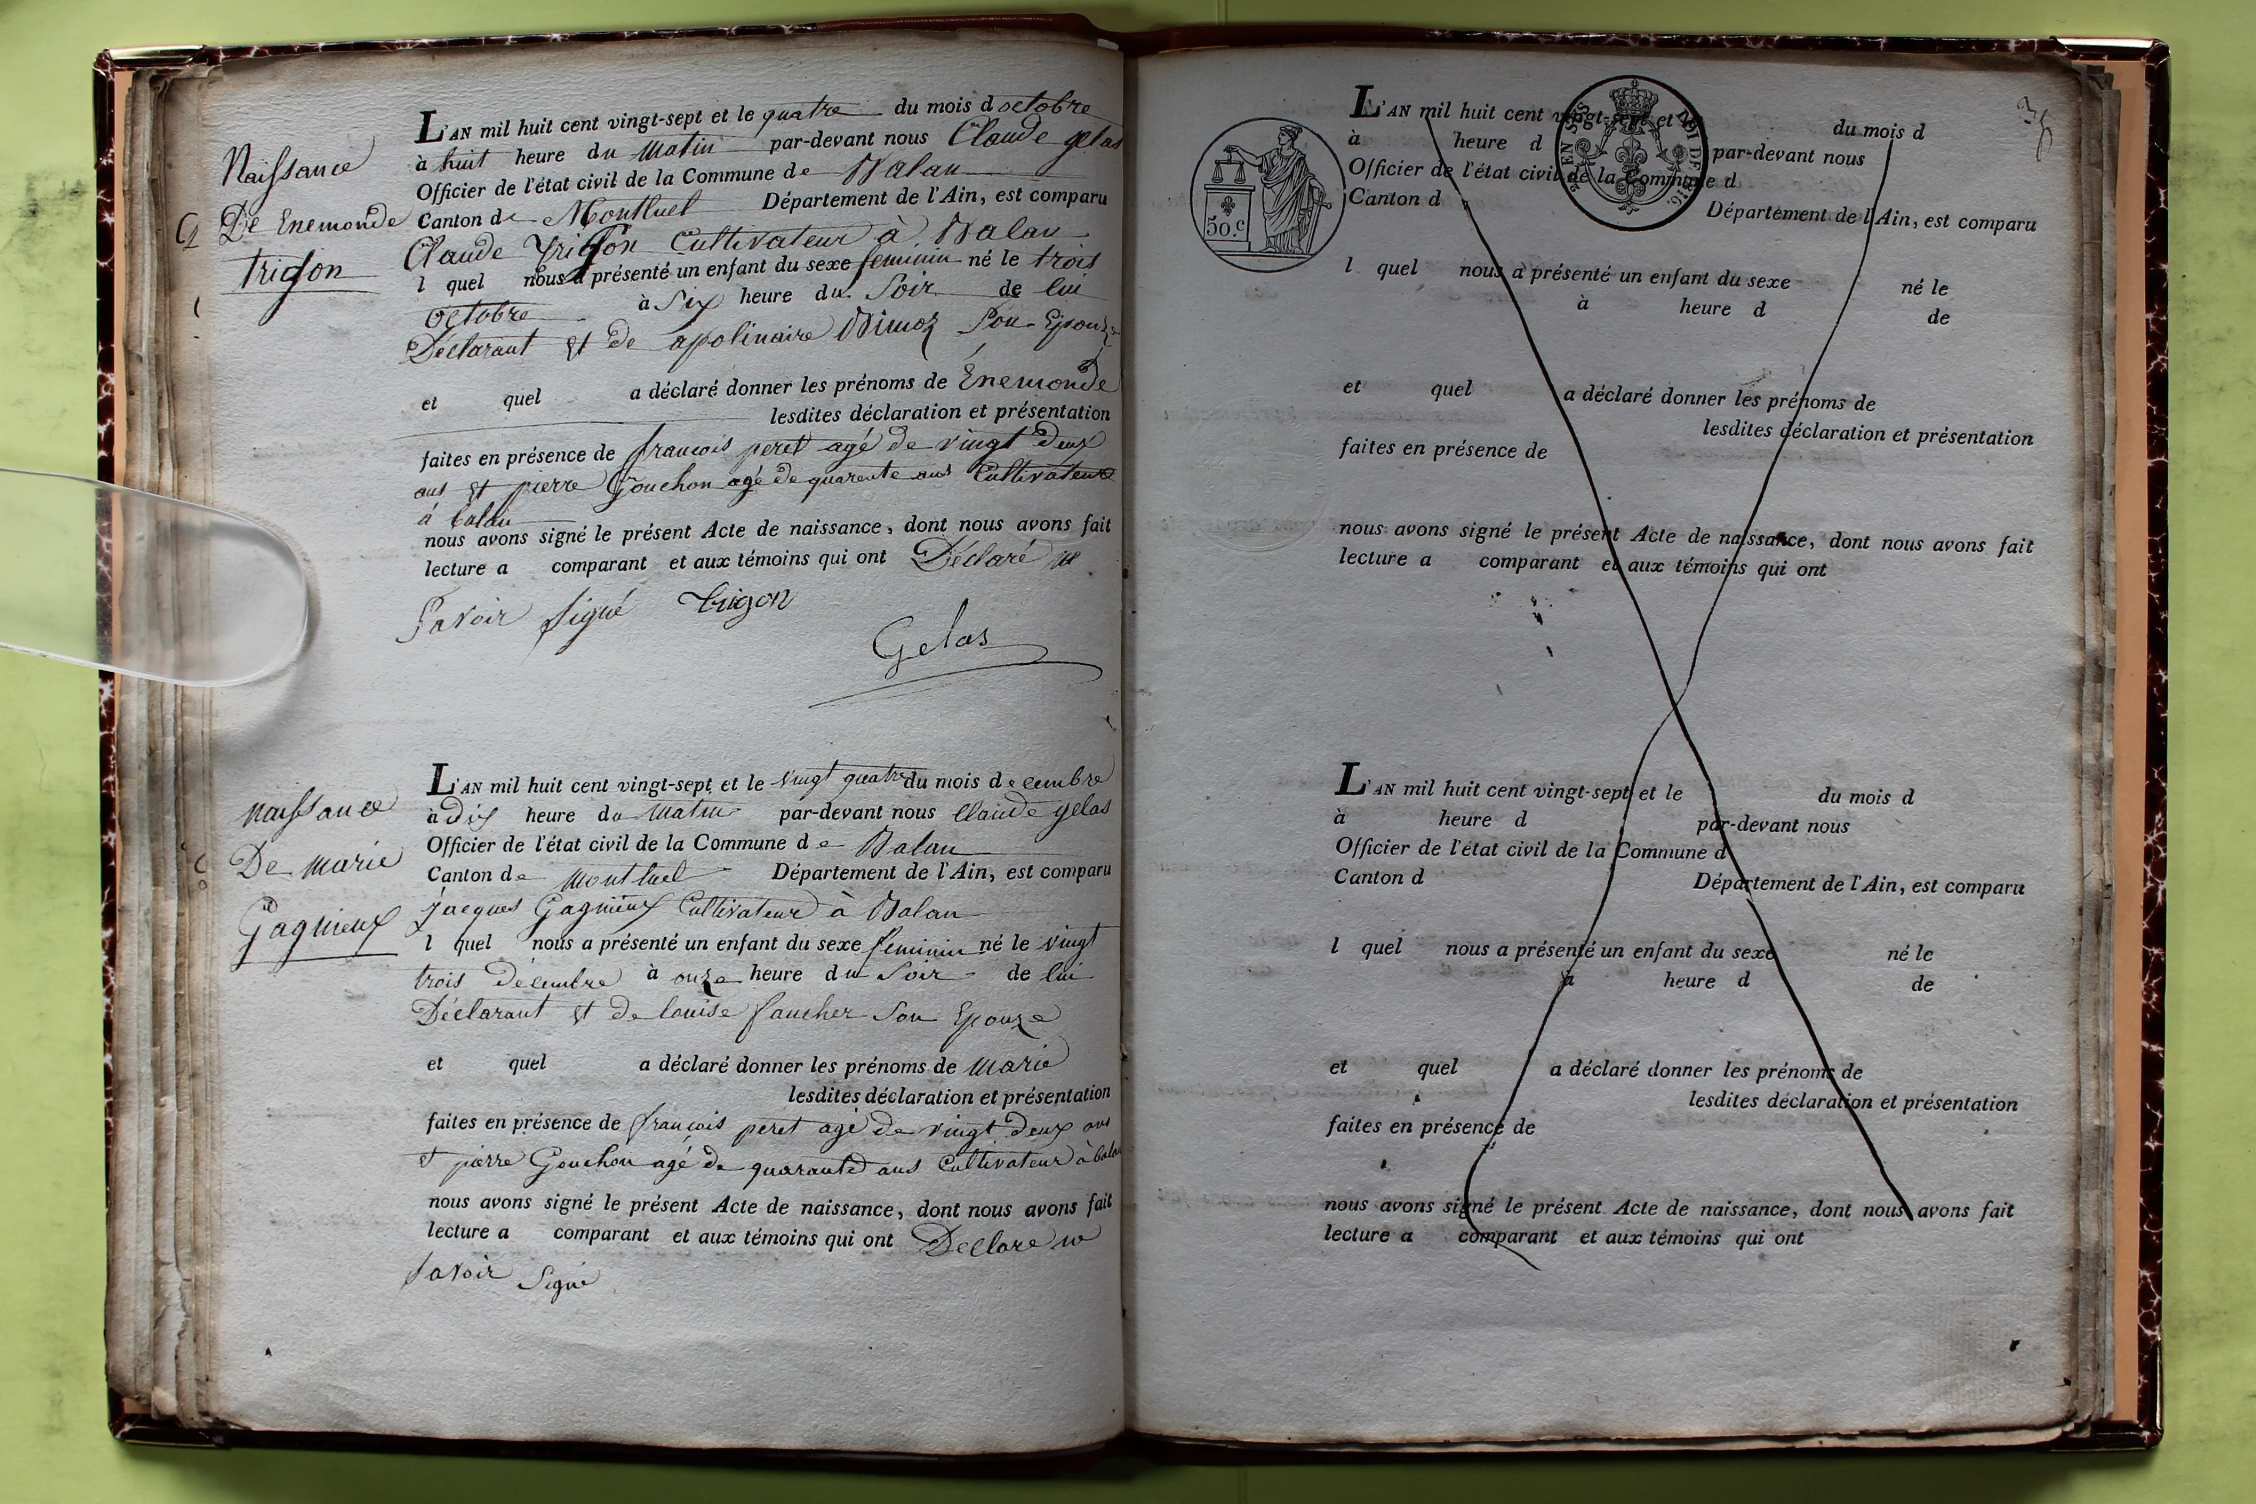 Naissance
De Enemonde
trigon
L'AN mil huit cent vingt-sept et le quatre du mois d octobre
à huit heure du matin par-devant nous Claude gelas
Officier de l'état civil de la Commune de Balan
Canton de Montluel Département de l'Ain, est comparu
Claude Trigon Cultivateur à Balan
l quel nous a présenté un enfant du sexe feminin né le trois
octobre à Six heure du Soir de lui
Déclarant et de apolinaire Son Epouze
et quel a déclaré donner les prénoms de Énemonde
lesdites déclaration et présentation
faites en présence de francois peret agé de vingt deux
ans et pierre Gouchon agé de quarente ans Cultivateur
à balan
nous avons signé le présent Acte de naissance, dont nous avons fait
lecture a comparant et aux témoins qui ont Déclaré ne
Savoir signé trigon
Gelas
naissance
De marie
Gagnieux
L'AN mil huit cent vingt-sept et le vingt quatre du mois decembre
à dix heure du matin par-devant nous Claude gelas
Officier de l'état civil de la Commune de Balan
Canton de montluel Département de l'Ain, est comparu
jacques Gagnieux Cultivateur à Balan
l quel nous a présenté un enfant du sexe feminin né le vingt
trois décembre à onze heure du Soir de lui
Déclarant et de louise faucher Son Epouze
et quel a déclaré donner les prénoms de marie
lesdites déclaration et présentation
faites en présence de francois peret agé de vingt deux ans
et pierre Gouchon agé de quarante ans Cultivateur à balan
nous avons signé le présent Acte de naissance, dont nous avons fait
lecture a comparant et aux témoins qui ont Declare ne
savoir Signé
50.c
LOI DE 1816.
L'AN mil huit cent vingt-sept et le du mois d
à heure d par-devant nous
Officier de l'état civil de la Commune d
Canton d Département de l'Ain, est comparu
l quel nous a présenté un enfant du sexe né le
à heure d de
et quel a déclaré donner les prénoms de
lesdites déclaration et présentation
faites en présence de
nous avons signé le présent Acte de naissance, dont nous avons fait
lecture a comparant et aux témoins qui ont
L'AN mil huit cent vingt-sept et le du mois d
à heure d par-devant nous
Officier de l'état civil de la Commune d
Canton d Département de l'Ain, est comparu
l quel nous a présenté un enfant du sexe né le
à heure d de
et quel a déclaré donner les prénoms de
lesdites déclaration et présentation
faites en présence de
nous avons signé le présent Acte de naissance, dont nous avons fait
lecture a comparant et aux témoins qui ont